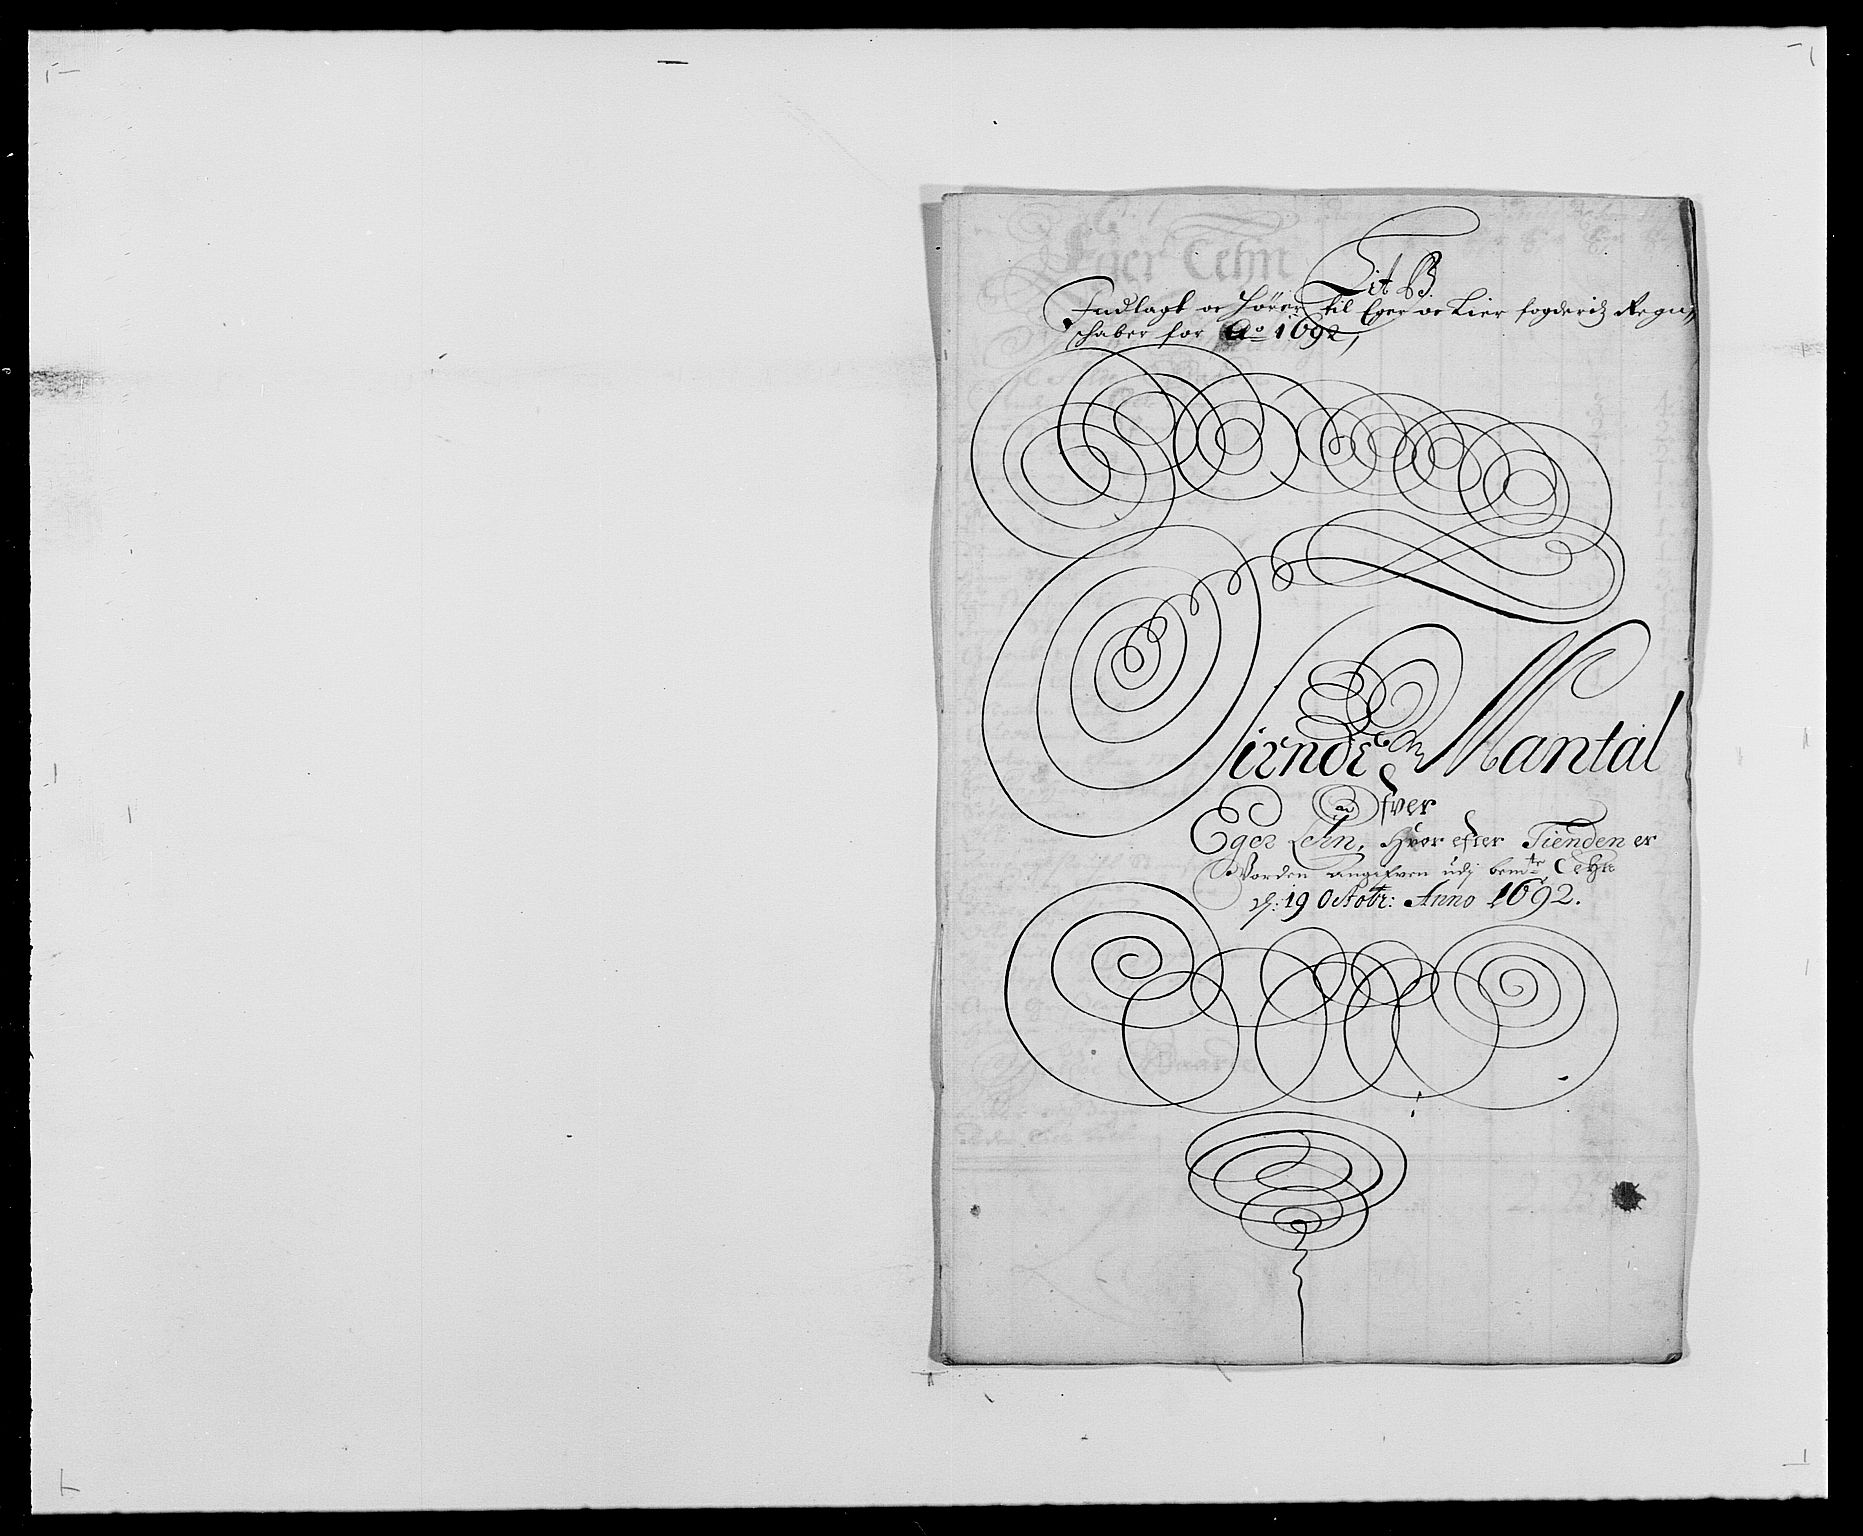 Lit B.
Indlagt oc hører til Eger oc Lier fogderiz Regn,,
schaber for Ao 1692,
Tiende Mantal
Ofver
Eger Lehn, Hvor efter Tienden er
Vorden angifven udj bemte Lehn
d: 19 Octobr: Anno 1692.